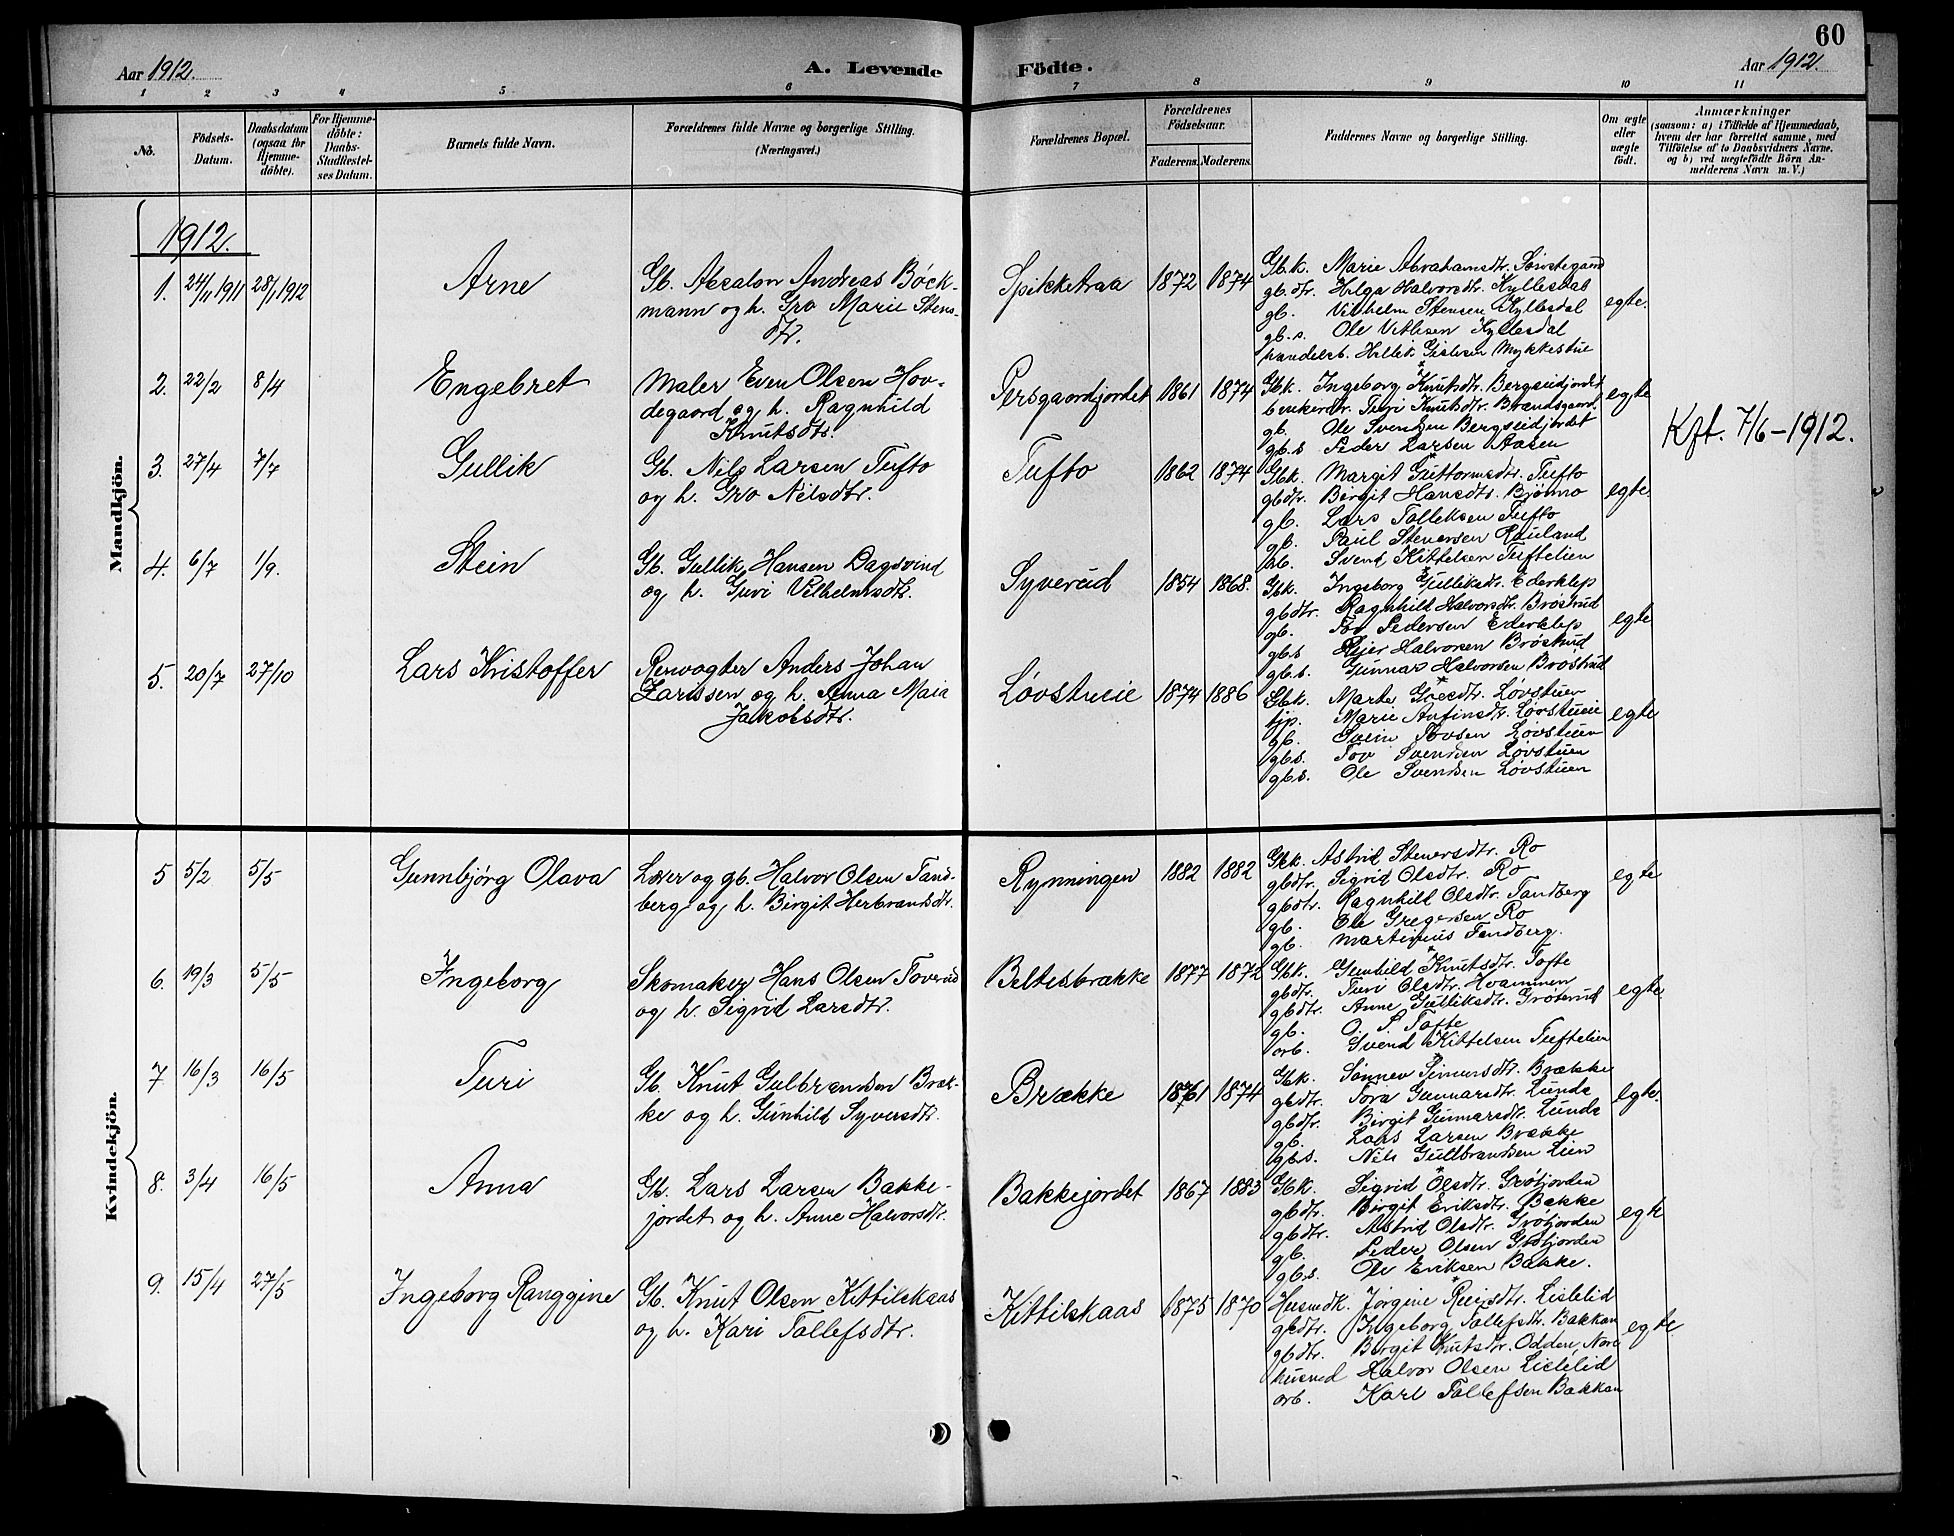 60
Aar 1912.
A. Levende
Födte.
Aar 1912.
1 2 3 4 5 6 7 8 9 10 11
No.
Födsels-
Datum.
Daabsdatum
(ogsaa for
Hjemme-
döbte).
For Hjemme-
döbte:
Daabs-
Stadfæstel-
ses Datum.
Barnets fulde Navn.
Forældrenes fulde Navne og borgerlige Stilling.
(Næringsvei.)
Forældrenes Bopæl.
Forældrenes
Födselsaar.
Faderens. Moderens.
Faddernes Navne og borgerlige Stilling.
Om ægte
eller
uægte
födt.
Anmærkninger
(saasom: a) i Tilfælde af Hjemmedaab,
hvem der har forrettet samme, med
Tilföielse af to Daabsvidners Navne.
og b) ved uægtefödte Börn An-
melderens Navn m. V.)
Mandkjön.
1912.
1. 24/11 1911 28/1 1912 Arne
Gb. Absalon Andreas Böck-
mann og h. Gro Marie Stens-
dtr.
Spikketraa 1872 1874
Gbk. Marie Abrahamsdtr.
gb.dtr. Helga Halvorsdtr. Kyllesdal
gb. Vilhelm Stensen Kyllesdal
gb.s. Ole Kyllesdal
Mykkestue
egte.
2. 22/2 8/4 Engebret
Maler Even Olsen Hov-
degaard og h. Ragnhild
Knutsdtr.
Persgaardjordet 1861 1874
Gbk. Ingeborg Knutsdtr. Bergseidjordet
Turi Knutsdtr. Brandsgaard
gb. Ole Svendsen Bergseidjordet
gb.s Peder Larsen Aasen
egte
Kft. 7/6-1912.
3. 27/4 7/7 Gullik
Gb. Nils Larsen Tufto
og h. Gro Nilsdtr.
Tufto 1862 1874
Gbk. Margit Guttormsdtr. Tufto
gbdtr. Birgit Hansdtr. Bjömo
gb. Lars Tolleksen Tufto
gb. Paul Stenersen Rauland
Svend Kittelsen Tuftelien
egte.
4. 6/7 1/9. Stein
Gb. Gullik Hansen Dagsvind
og h. Guri Vilhelmsdtr.
Syverud 1854 1868.
Gbk. Ingeborg Gulliksdtr. Ederklep
gbdtr. Ragnhild Halvorsdtr. Bröstrud
gb. Tov Pedersen Ederklep
gbs Halvorsen Bröstrud
gb.s. Gunnar Halvorsen Bröstrud
egte
5. 20/7 27/10 Lars Kristoffer
Renvogter Anders Johan
Larssen og h. Anna Maia
Jakobsdtr.
Lövstueie 1874 1886
Gbk. Marte Lövstuen
tjp. Marie Anfinsdtr. Lövstueie
gb. Svein Tovsen Lövstuen
gbs. Tov Svendsen Lövstuen
gbs. Ole Svendsen Lövstuen
egte
Kvindekjön.
5 5/2 5/5 Gunnbjörg Olava
Lærer og gb. Halvor Olsen Tand-
berg og h. Birgit Herbrandsdtr.
Rynningen 1882 1882
Gbk. Astrid Stenersdtr. Ro
gbdtr. Sigrid Olsdtr. Ro
gbdtr. Ragnhild Olsdtr. Tandberg
gb. Ole Gregersen Ro
gb. Martinius Tandberg.
egte
6. 19/3 5/5 Ingeborg
Skomaker Hans Olsen Toverud
og h. Sigrid Larsdtr.
Beltesbrække 1877 1872
Gbk. Gunhild Knutsdtr. Tofte
gbdtr. Turi Olsdtr. Hvammen
gbdtr. Anne Gulliksdtr. Gröterud
gb. O. P. Tofte
arb. Svend Kittelsen Tuftelien
egte
7 16/3 16/5 Turi
Gb. Knut Gulbrandsen Bræk-
ke og h. Gunhild Syversdtr.
Brække 1861 1874
Gbk. Sönnev Simensdtr. Brække
gbdtr. Tora Gunnarsdtr. Lunde
gbdtr. Birgit Gunnarsdtr. Lunde
gb. Lars Larsen Brække
gb.s. Nils Gulbrandsen Lien
egte.
8. 3/4 16/5 Anna
Gb. Lars Larsen Bakke-
jordet og h. Anne Halvorsdtr.
Bakkejordet 1867 1883
Gbk. Sigrid Olsdtr. Gröfjorden
gbdtr. Birgit Eriksdtr. Bakke
gbdtr. Astrid Olsdtr. Gröfjorden
gb. Peder Olsen Gröfjorden
gb.s. Ole Eriksen Bakke.
egte
9. 15/4 27/5 Ingeborg Ranggine
Gb. Knut Olsen Kittilskaas
og h. Kari Tollefsdtr.
Kittilskaas 1875 1870
Husmdk. Jörgine Lislelid
gbdtr. Ingeborg Tollefsdtr. Bakkan
gbdtr. Birgit Knutsdtr. Odden, Nore
husmd Halvor Olsen Lislelid
arb. Karl Tollefsen Bakkan
egte